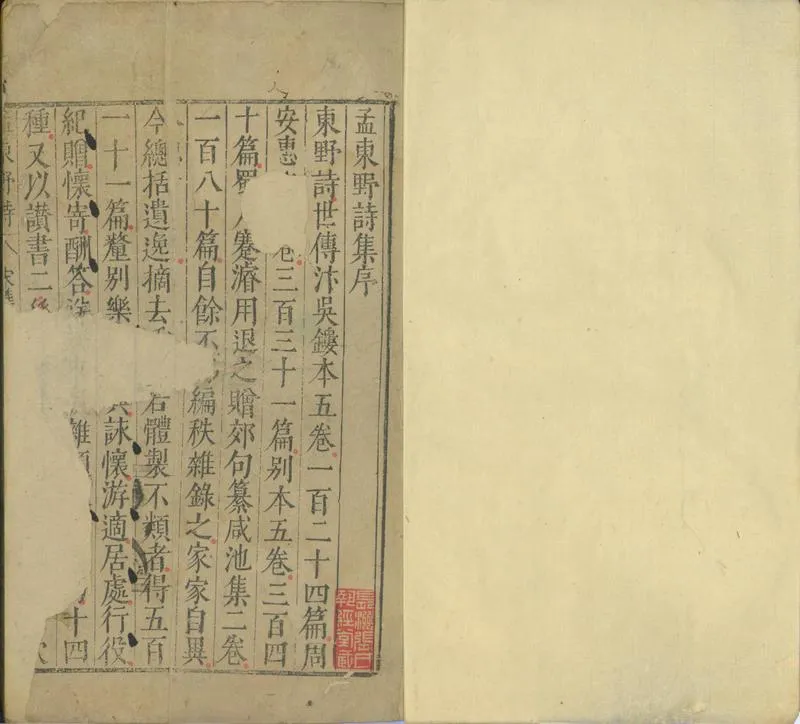 孟東野詩集序
東野詩世傳汴吳鏤本五卷一百二十四篇周
安惠 三百三十一篇別本五卷三百四
十篇蜀人蹇濬用退之贈郊句纂咸池集二卷
一百八十篇自餘不 編秩雜錄之家家自異
今總括遺逸摘去 若體製不類者得五百
一十一篇釐別樂 詠懷游適居處行役
紀贈懷寄酬答 雜 十四
種又以讃書二 次
孟東野詩